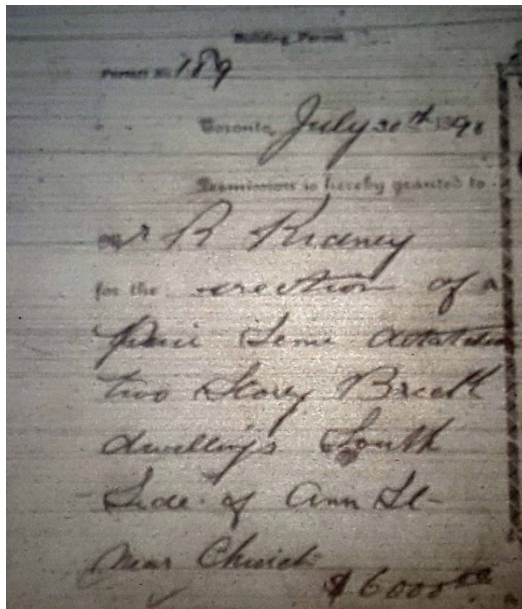 Building Permit
Permit No 189
Toronto, July 30th 1898
Permission is hereby granted to
Mr R Kidney
for the erection of a
pair Semi detatched
two Storey Brick
dwellings South
Side of Ann St
Near Church
$6000.00